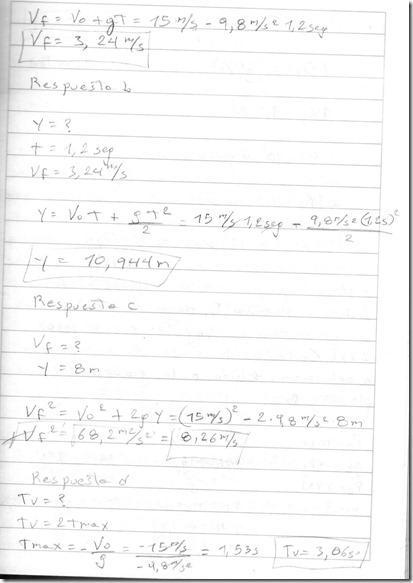 Vf = Vo + gT = 15 m/s - 9,8 m/s² 1,2 seg
Vf = 3,24 m/s
Respuesta b
Y = ?
t = 1,2 seg
Vf = 3,24 m/s
Y = Vo T + gT²/2 = 15 m/s 1,2 seg - 9,8 m/s² (1,2s)²/2
Y = 10,944 m
Respuesta c
Vf = ?
Y = 8m
Vf² = Vo² + 2gY = (15 m/s)² - 2·98 m/s²·8m
Vf² = √68,2 m²/s² = 8,26 m/s
Respuesta d
Tv = ?
Tv = 2Tmax
Tmax = -Vo/g = -15 m/s/-9,8 m/s² = 1,53s Tv = 3,06s